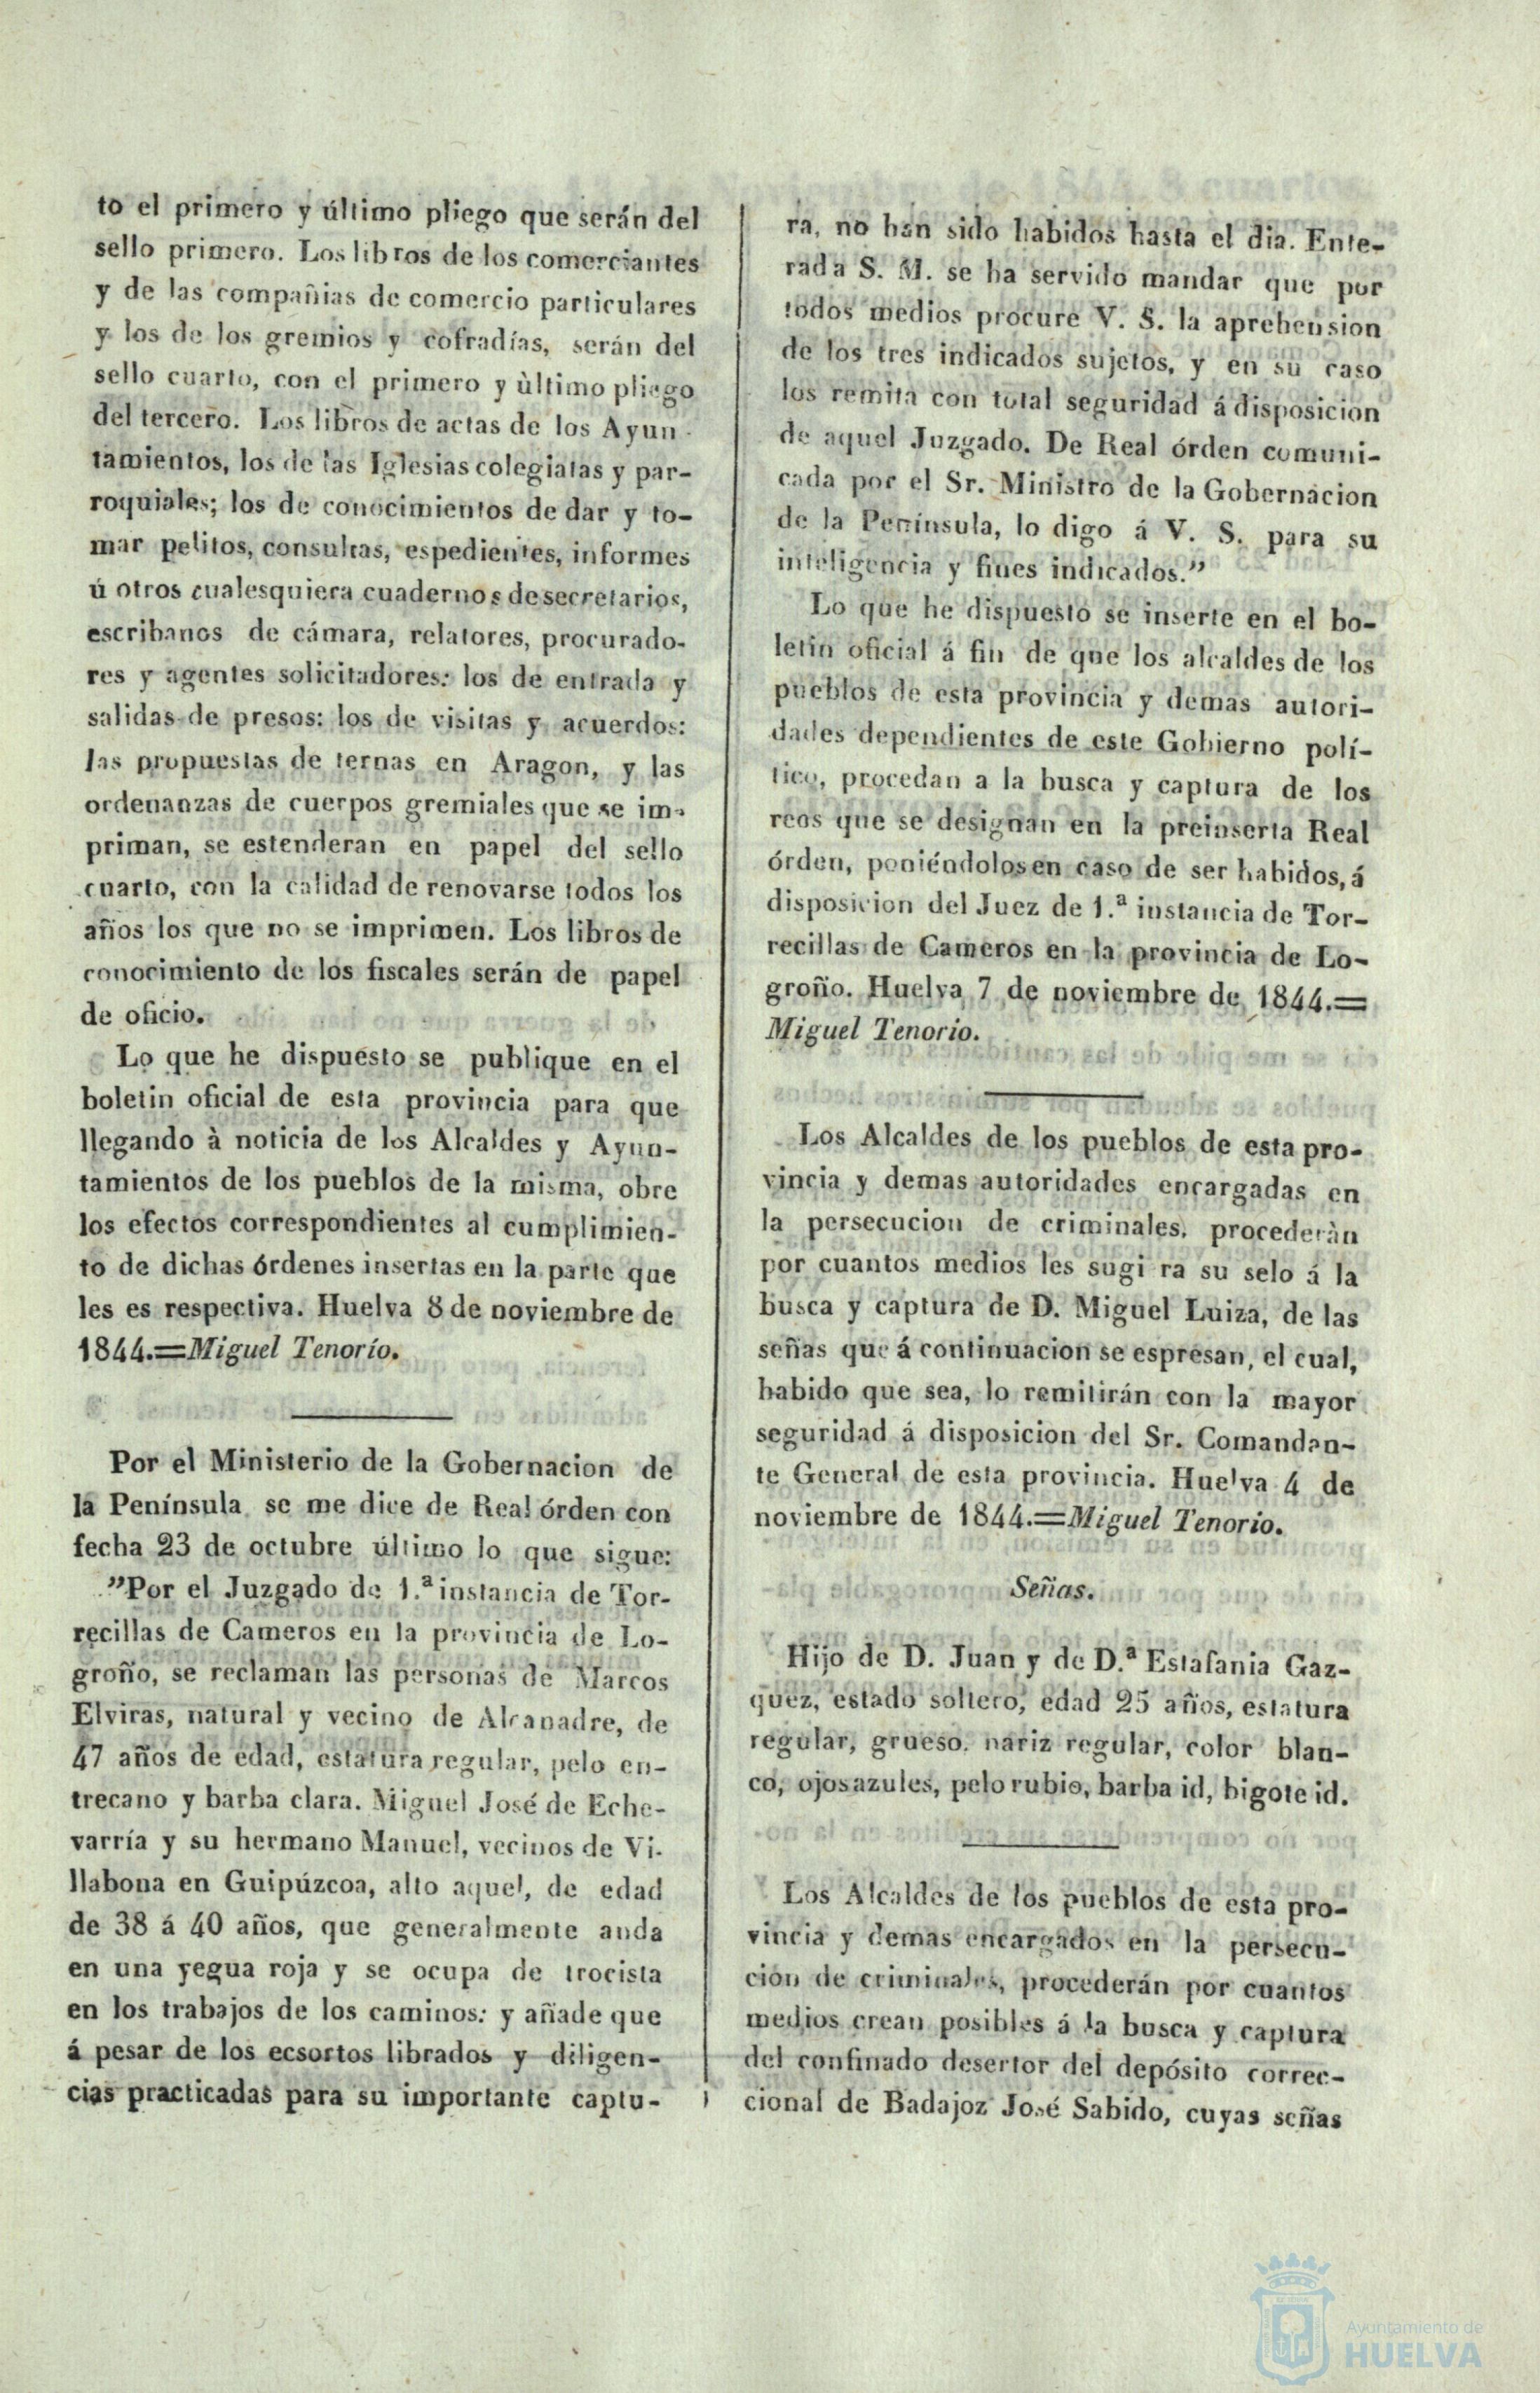 to el primero y último pliego que serán del
sello primero. Los libros de los comerciantes
y de las compañias de comercio particulares
y los de los gremios y cofradías, serán del
sello cuarto, con el primero y ùltimo pliego
del tercero. Los libros de actas de los Ayun-
tamientos, los de las Iglesias colegiatas y par-
roquiales; los de conocimientos de dar y to-
mar pelitos, consultas, espedientes, informes
ú otros cualesquiera cuadernos de secretarios,
escribanos de cámara, relatores, procurado-
res y agentes solicitadores: los de entrada y
salidas de presos: los de visitas y acuerdos:
las propuestas de ternas en Aragon, y las
ordenanzas de cuerpos gremiales que se im-
priman, se estenderan en papel del sello
cuarto, con la calidad de renovarse todos los
años los que no se imprimen. Los libros de
conocimiento de los fiscales serán de papel
de oficio.
Lo que he dispuesto se publique en el
boletin oficial de esta provincia para que
llegando à noticia de los Alcaldes y Ayun-
tamientos de los pueblos de la misma, obre
los efectos correspondientes al cumplimien-
to de dichas órdenes insertas en la parte que
les es respectiva. Huelva 8 de noviembre de
1844.=Miguel Tenorío.
Por el Ministerio de la Gobernacion de
la Península se me dice de Real órden con
fecha 23 de octubre último lo que sigue:
"Por el Juzgado de 1.ª instancia de Tor-
recillas de Cameros en la provincia de Lo-
groño, se reclaman las personas de Marcos
Elviras, natural y vecino de Alcanadre, de
47 años de edad, estatura regular, pelo en-
trecano y barba clara. Miguel José de Eche-
varría y su hermano Manuel, vecinos de Vi-
llabona en Guipúzcoa, alto aquel, de edad
de 38 á 40 años, que generalmente anda
en una yegua roja y se ocupa de trocista
en los trabajos de los caminos: y añade que
á pesar de los ecsortos librados y diligen-
cias practicadas para su importante captu-
ra, no han sido habidos hasta el dia. Ente-
rada S. M. se ha servido mandar que por
todos medios procure V. S. la aprehension
de los tres indicados sujetos, y en su caso
los remita con total seguridad á disposicion
de aquel Juzgado. De Real órden comuni-
cada por el Sr. Ministro de la Gobernacion
de la Península, lo digo á V. S. para su
inteligencia y fines indicados."
Lo que he dispuesto se inserte en el bo-
letin oficial á fin de que los alcaldes de los
pueblos de esta provincia y demas autori-
dades dependientes de este Gobierno polí-
tico, procedan a la busca y captura de los
reos que se designan en la preinserta Real
órden, poniéndolos en caso de ser habidos, á
disposicion del Juez de 1.ª instancia de Tor-
recillas de Cameros en la provincia de Lo-
groño. Huelva 7 de noviembre de 1844.=
Miguel Tenorio.
Los Alcaldes de los pueblos de esta pro-
vincia y demas autoridades encargadas en
la persecucion de criminales, procederàn
por cuantos medios les sugi ra su selo á la
busca y captura de D. Miguel Luiza, de las
señas que á continuacion se espresan, el cual,
habido que sea, lo remitirán con la mayor
seguridad á disposicion del Sr. Comandan-
te General de esta provincia. Huelva 4 de
noviembre de 1844.=Miguel Tenorio.
Señas.
Hijo de D. Juan y de D.ª Estafania Gaz-
quez, estado soltero, edad 25 años, estatura
regular, grueso. nariz regular, color blan-
co, ojos azules, pelo rubio, barba id, bigote id.
Los Alcaldes de los pueblos de esta pro-
vincia y demas encargados en la persecu-
cion de criminales, procederán por cuantos
medios crean posibles á la busca y captura
del confinado desertor del depósito correc-
cional de Badajoz José Sabido, cuyas señas
Ayuntamiento de
HUELVA